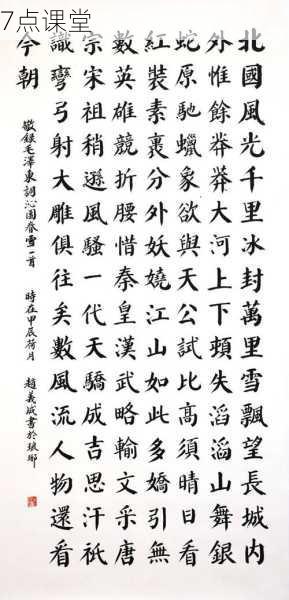 7点课堂
北國風光千里冰封萬里雪飄望長城內
外惟餘莽莽大河上下頓失滔滔山舞銀
蛇原馳蠟象欲與天公試比高須晴日看
紅裝素裹分外妖嬈江山如此多嬌引無
數英雄競折腰惜秦皇漢武略輸文采唐
宗宋祖稍遜風騷一代天驕成吉思汗祇
識彎弓射大雕俱往矣數風流人物還看
今朝
敬錄毛澤東詞沁園春雪一首 時在甲辰荷月 趙義成書於琅琊